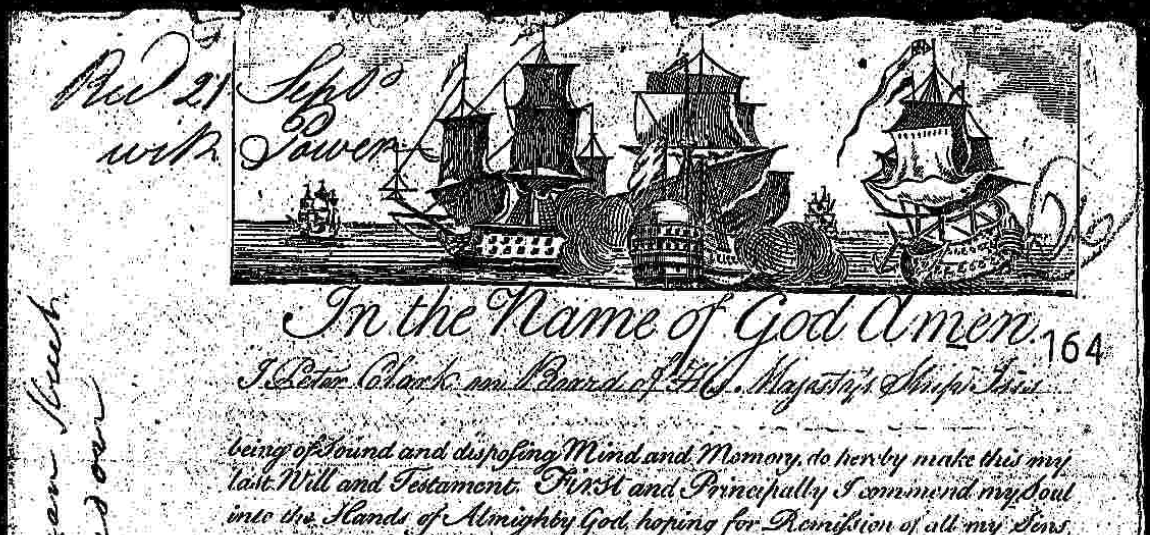 Recd 21 Septr
with Power
In the Name of God Amen.
164
I Peter Clark on Board of His Majesty's Ship Isis
being of Sound and disposing Mind and Memory, do hereby make this my
last Will and Testament. First and Principally I commend my Soul
into the Hands of Almighty God, hoping for Remission of all my Sins,
Street